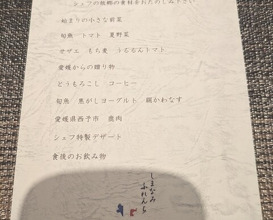 シェフの故郷の食材をおたのしみ下さい
始まりの小さな前菜
旬魚 トマト 夏野菜
サザエ もち麦 うるるんトマト
愛媛からの贈り物
とうもろこし コーヒー
旬魚 焦がしヨーグルト 鍋かわなす
愛媛県西予市 鹿肉
シェフ特製デザート
食後のお飲み物
しまなみ
ふれんち